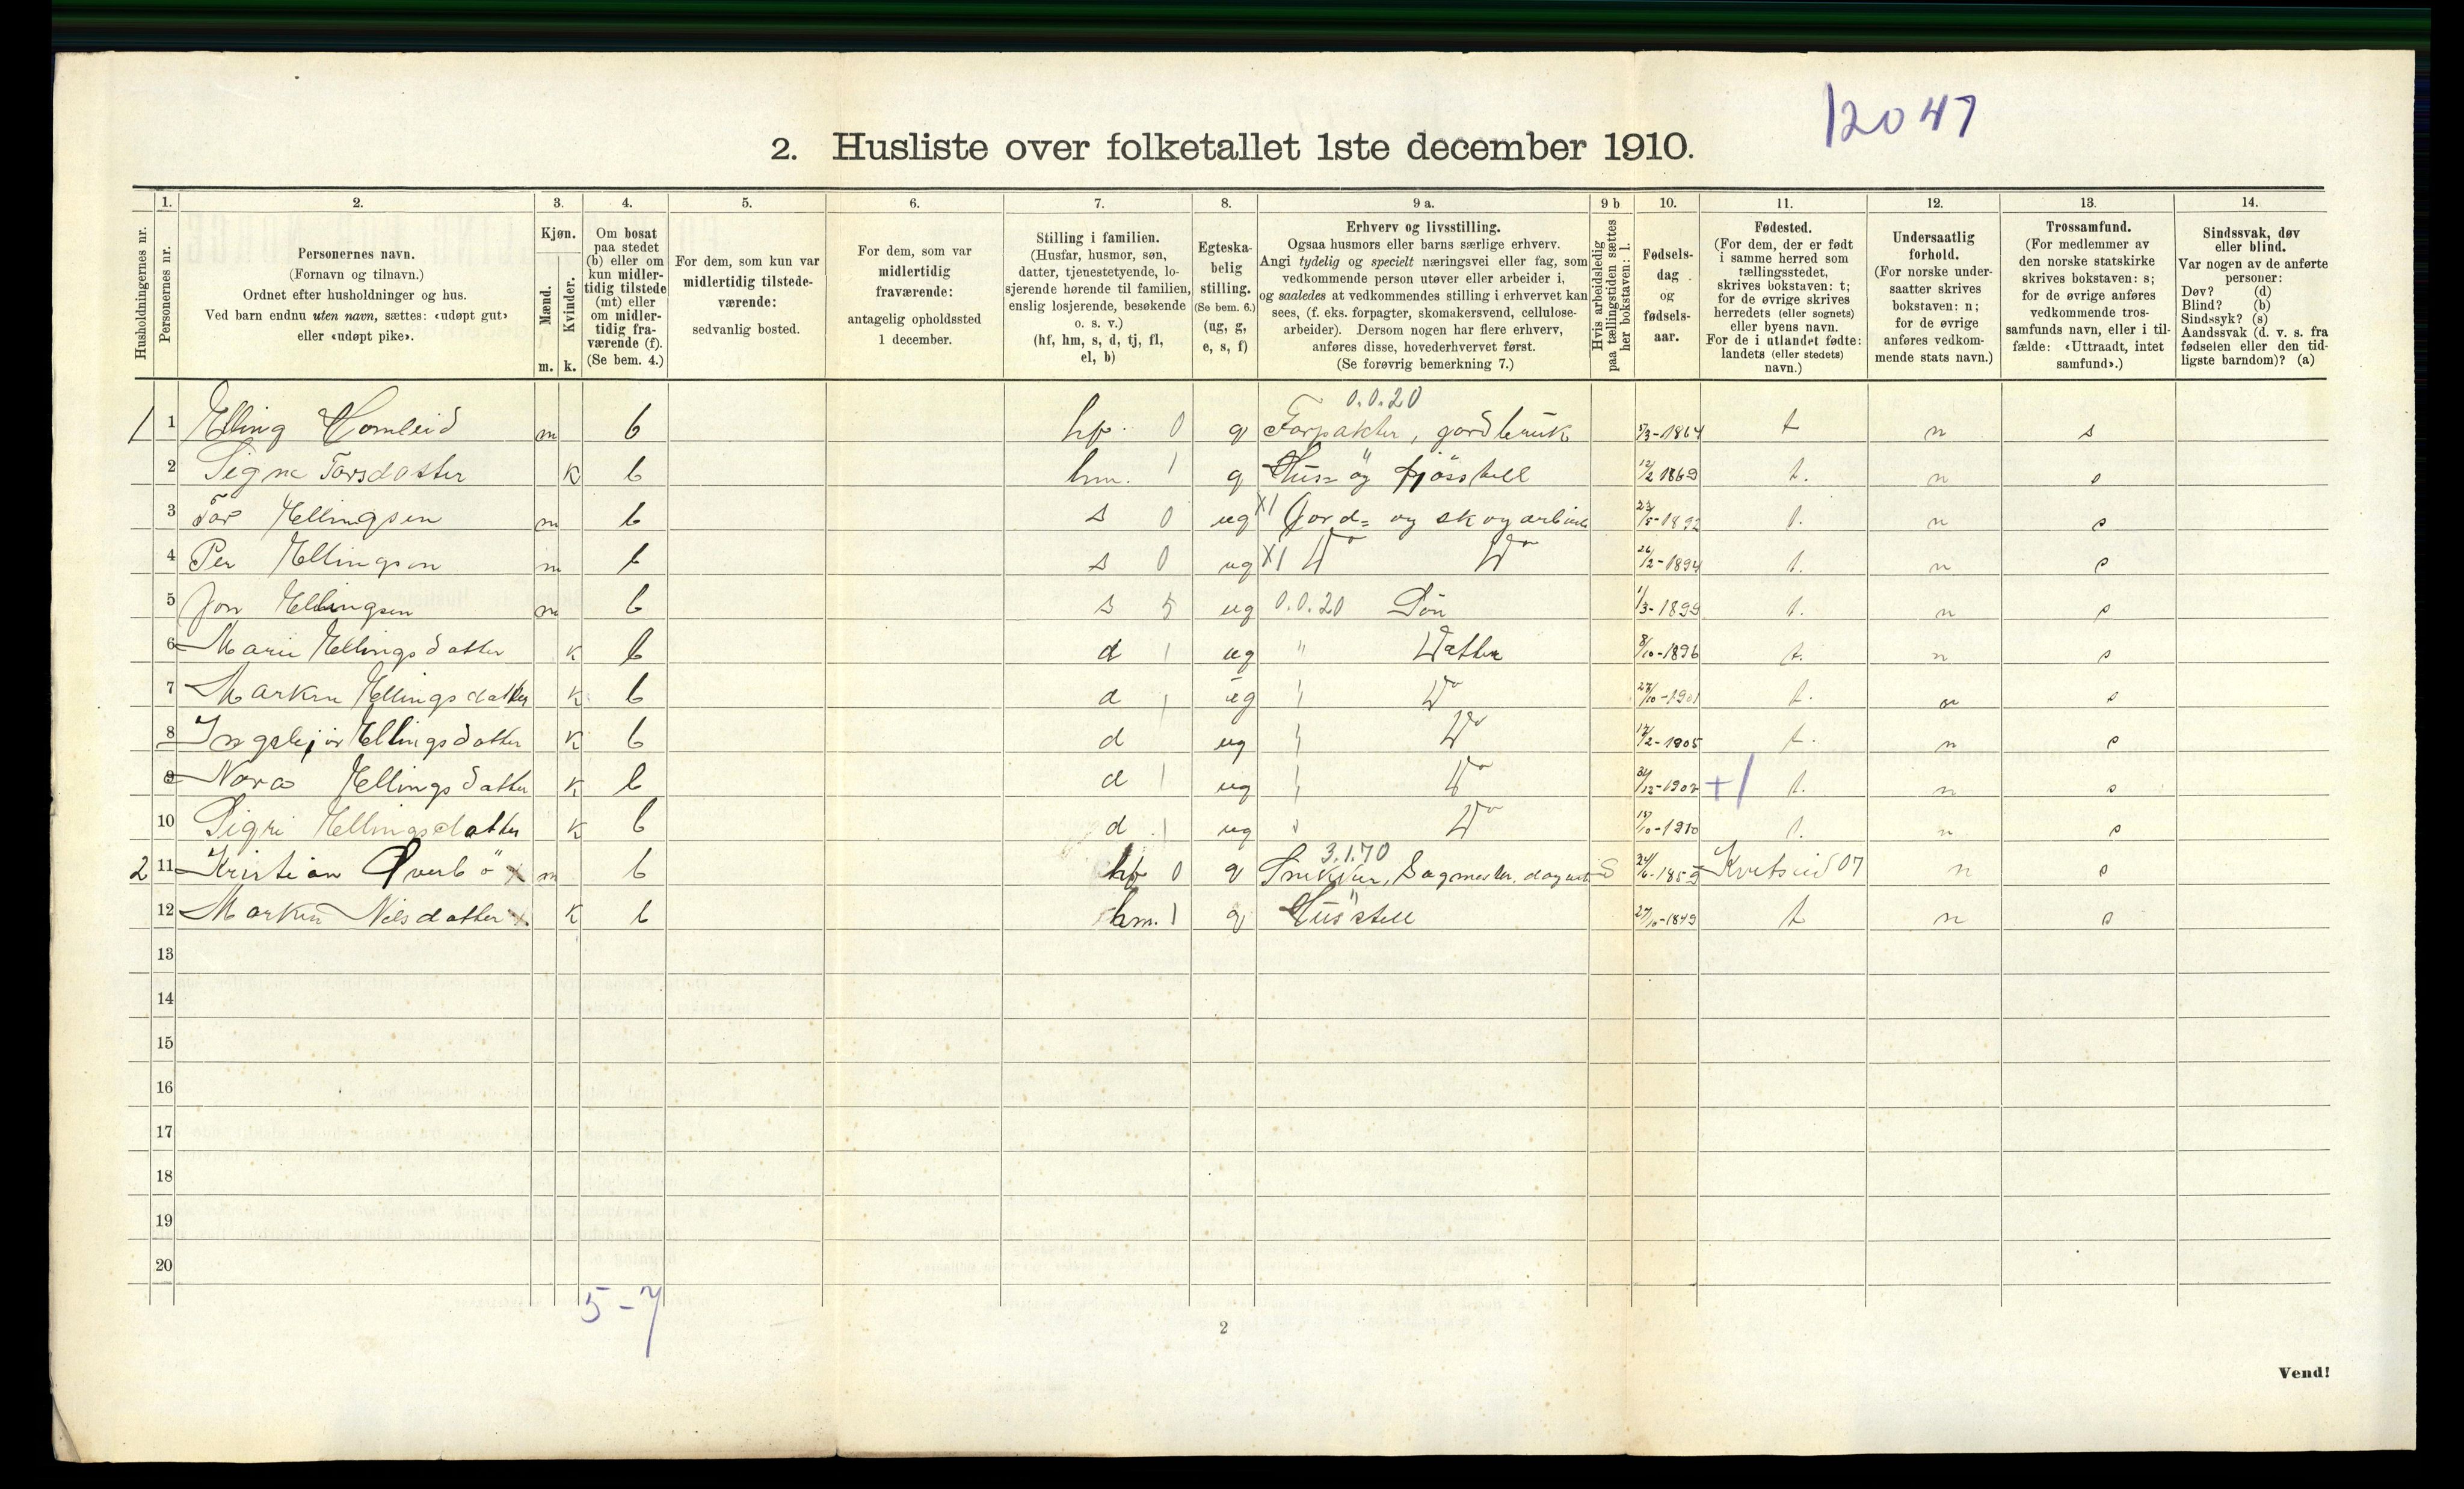 12047
2. Husliste over folketallet 1ste december 1910.
Husholdningernes nr.
1. Personernes nr.
2.
Personernes navn.
(Fornavn og tilnavn.)
Ordnet efter husholdninger og hus.
Ved barn endnu uten navn, sættes: «udøpt gut»
eller «udøpt pike».
3.
Kjøn.
Mænd. Kvinder.
m. k.
4.
Om bosat
paa stedet
(b) eller om
kun midler-
tidig tilstede
(mt) eller
om midler-
tidig fra-
værende (f).
(Se bem. 4.)
5.
For dem, som kun var
midlertidig tilstede-
værende:
sedvanlig bosted.
6.
For dem, som var
midlertidig
fraværende:
antagelig opholdssted
1 december.
7.
Stilling i familien.
(Husfar, husmor, søn,
datter, tjenestetyende, lo-
sjerende hørende til familien,
enslig losjerende, besøkende
o. s. v.)
(hf, hm, s, d, tj, fl,
el, b)
8.
Egteska-
belig
stilling.
(Se bem. 6.)
(ug, g,
e, s, f)
9 a.
Erhverv og livsstilling.
Ogsaa husmors eller barns særlige erhverv.
Angi tydelig og specielt næringsvei eller fag, som
vedkommende person utøver eller arbeider i,
og saaledes at vedkommendes stilling i erhvervet kan
sees, (f. eks. forpagter, skomakersvend, cellulose-
arbeider). Dersom nogen har flere erhverv,
anføres disse, hovederhvervet først.
(Se forøvrig bemerkning 7.)
9 b
Hvis arbeidsledig
paa tællingstiden sættes
her bokstaven: l.
10.
Fødsels-
dag
og
fødsels-
aar.
11.
Fødested.
(For dem, der er født
i samme herred som
tællingsstedet,
skrives bokstaven: t;
for de øvrige skrives
herredets (eller sognets)
eller byens navn.
For de i utlandet fødte:
landets (eller stedets)
navn.)
12.
Undersaatlig
forhold.
(For norske under-
saatter skrives
bokstaven: n;
for de øvrige
anføres vedkom-
mende stats navn.)
13.
Trossamfund.
(For medlemmer av
den norske statskirke
skrives bokstaven: s;
for de øvrige anføres
vedkommende tros-
samfunds navn, eller i til-
fælde: «Uttraadt, intet
samfund».)
14.
Sindssvak, døv
eller blind.
Var nogen av de anførte
personer:
Døv? (d)
Blind? (b)
Sindssyk? (s)
Aandssvak (d. v. s. fra
fødselen eller den tid-
ligste barndom)? (a)
0.0.20
1 1 Elling Homleid m b hf. 0 g Forpakter, gardbruk 5/3-1864 t n s
2 Signe Torsdatter k b hm. 1 g Hus= og fjösstell 12/2 1869 t. n s
3 Tor Ellingsen m b s 0 ug X1 Jord= og skogarbeide 23/5-1892 t. n s
4 Per Ellingsen m b s 0 ug X1 Do Do 26/2-1894 t. n s
5 Jon Ellingsen m b s 5 ug 0.0.20 Sön 1/3-1899 t. n s
6 Marie Ellingsdatter k b d 1 ug " Datter 8/10-1896 t. n s
7 Marken Ellingsdatter k b d 1 ug " Do 27/10-1901 t. n s
8 Ingebjör Ellingsdatter k b d ug " Do 17/2-1905 t. n s
9 Nara Ellingsdatter k b d 1 ug " Do 31/12-1907 +1 t. n s
10 Sigri Ellingsdatter k b d 1 ug " Do 15/10-1910 t. n s
3.1.70
2 11 Kristian Överbö x m b hf 0 g Snekker, Sagmester, S 24/6-1859 Kvitseid 07 n s
12 Marken Nilsdatter x. k b hm. 1 g Husstell 27/10-1849 t n s
13
14
15
16
17
18
19
20
5-7
2
Vend!